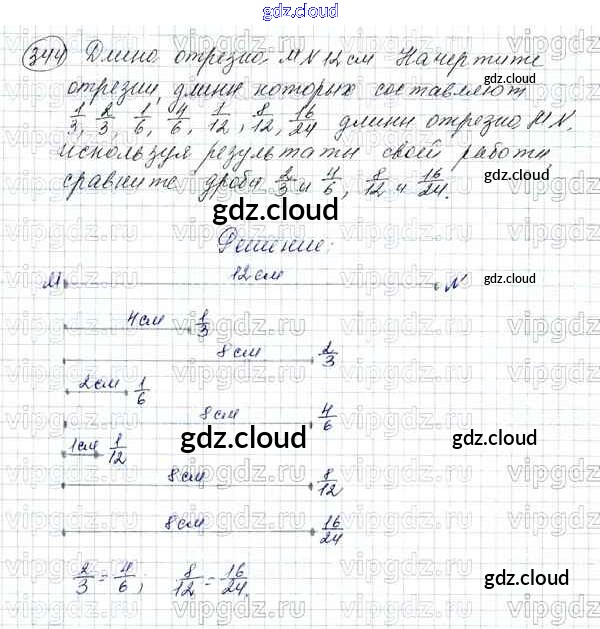 gdz.cloud
344 Длина отрезка MN 12 см Начертите
отрезки, длины которых составляют
1/3, 2/3, 1/6, 4/6, 1/12, 8/12, 16/24 длины отрезка MN,
используя результаты своей работы,
сравните дроби 2/3 и 4/6, 8/12 и 16/24.
gdz.cloud
gdz.cloud
gdz.cloud
gdz.cloud
Решение:
M 12 см N
gdz.cloud
4 см 1/3
8 см 2/3
2 см 1/6
8 см 4/6
gdz.cloud
gdz.cloud
1 см 1/12
8 см 8/12
8 см 16/24
2/3 = 4/6, 8/12 = 16/24.
gdz.cloud
vipgdz.ru